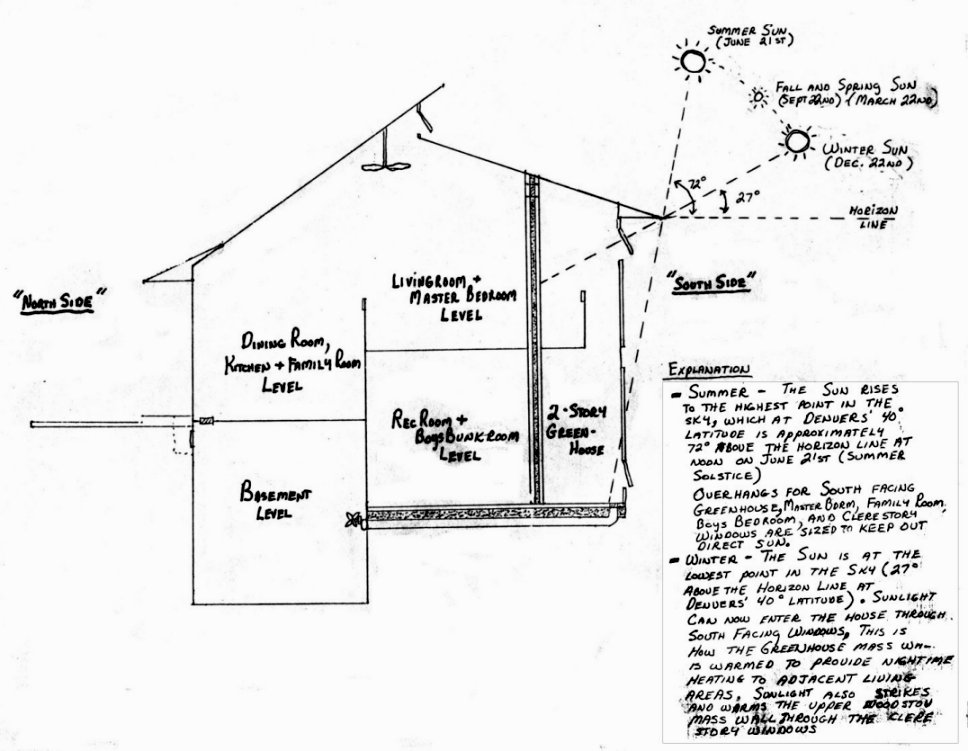 SUMMER SUN
(JUNE 21ST)
FALL AND SPRING SUN
(SEPT 22ND) (MARCH 22ND)
WINTER SUN
(DEC. 22ND)
72°
27°
HORIZON
LINE
"NORTH SIDE"
"SOUTH SIDE"
LIVINGROOM +
MASTER BEDROOM
LEVEL
DINING ROOM,
KITCHEN + FAMILY ROOM
LEVEL
REC ROOM +
BOYS BUNKROOM
LEVEL
2-STORY
GREEN-
HOUSE
BASEMENT
LEVEL
EXPLANATION
- SUMMER - THE SUN RISES
TO THE HIGHEST POINT IN THE
SKY, WHICH AT DENVERS' 40°
LATITUDE IS APPROXIMATELY
72° ABOVE THE HORIZON LINE AT
NOON ON JUNE 21ST (SUMMER
SOLSTICE)
OVERHANGS FOR SOUTH FACING
GREENHOUSE, MASTER BDRM, FAMILY ROOM,
BOYS BEDROOM, AND CLERESTORY
WINDOWS ARE SIZED TO KEEP OUT
DIRECT SUN.
- WINTER - THE SUN IS AT THE
LOWEST POINT IN THE SKY (27°
ABOVE THE HORIZON LINE AT
DENVERS' 40° LATITUDE). SUNLIGHT
CAN NOW ENTER THE HOUSE THROUGH
SOUTH FACING WINDOWS, THIS IS
HOW THE GREENHOUSE MASS
IS WARMED TO PROVIDE NIGHTIME
HEATING TO ADJACENT LIVING
AREAS. SUNLIGHT ALSO STRIKES
AND WARMS THE UPPER WOODSTOV
MASS WALL THROUGH THE CLERE
STORY WINDOWS